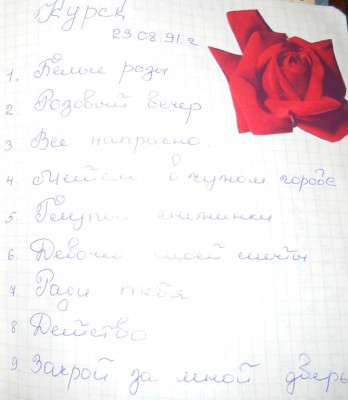 Курск
29.08.91.г
1. Белые розы
2 Розовый вечер
3 Все напрасно.
4. в чужом городе
5. снежинки
6 Девочка моей мечты
7. Ради тебя
8 Детство
9. Закрой за мной дверь